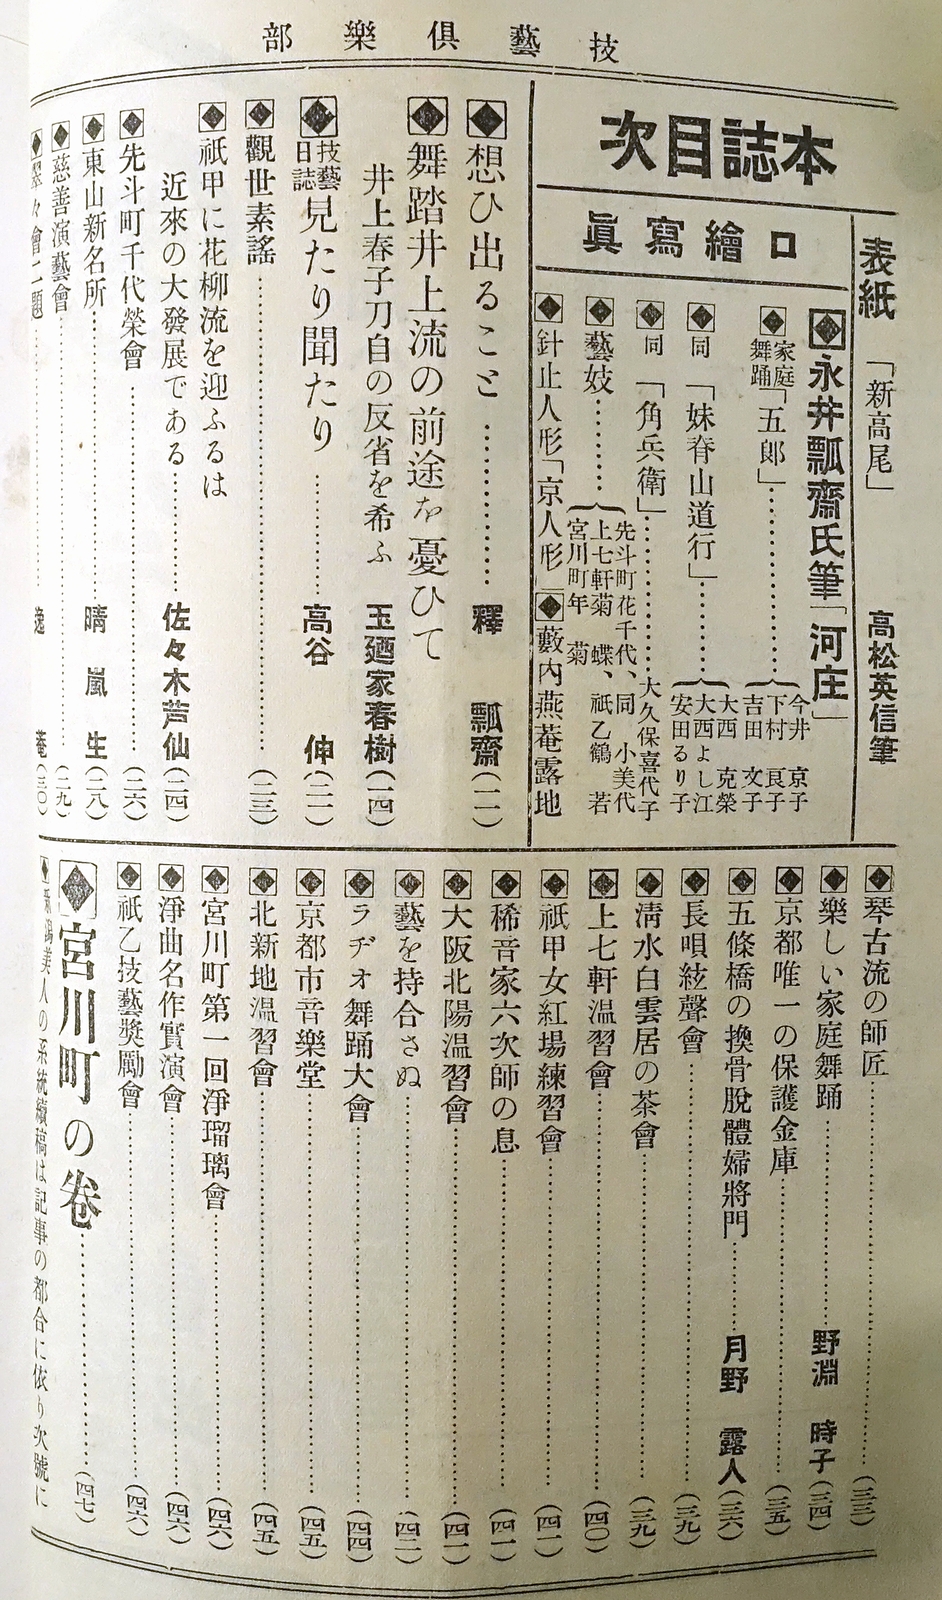 技藝俱樂部
本誌目次
表紙 「新高尾」 高松英信筆
口繪寫眞
◆永井瓢齋氏筆「河庄」
◆家庭舞踊「五郎」……今井 京子
下村 良子
吉田 文子
◆同 「妹脊山道行」……大西 克榮
大西よし江
安田るり子
◆同 「角兵衛」……大久保喜代子
◆藝妓……先斗町花千代、同 小美代
上七軒菊 蝶、祇乙鶴 若
宮川町年 菊
◆針止人形「京人形」◆藪内燕菴露地
◆想ひ出ること……釋 瓢齋(二)
◆舞踏井上流の前途を憂ひて
井上春子刀自の反省を希ふ 玉廼家春樹(一四)
◆技藝日誌見たり聞たり……高谷 伸(二一)
◆觀世素謠……(二三)
◆祇甲に花柳流を迎ふるは
近來の大發展である……佐々木芦仙(二四)
◆先斗町千代榮會……(二六)
◆東山新名所……晴嵐生(二八)
◆慈善演藝會……(二九)
々會二題……逸 菴(三〇)
◆琴古流の師匠……(三三)
◆樂しい家庭舞踊……野淵 時子(三四)
◆京都唯一の保護金庫……(三五)
◆五條橋の換骨脫體婦將門……月野 露人(三六)
◆長唄絃聲會……(三九)
◆淸水白雲居の茶會……(三九)
◆上七軒温習會……(四〇)
◆祇甲女紅場練習會……(四一)
◆稀音家六次師の息……(四一)
◆大阪北陽温習會……(四一)
◆藝を持合さぬ……(四二)
◆ラヂオ舞踊大會……(四四)
◆京都市音樂堂……(四五)
◆北新地温習會……(四五)
◆宮川町第一回淨瑠璃會……(四六)
◆淨曲名作實演會……(四六)
◆祇乙技藝獎勵會……(四六)
◆宮川町の卷……(四七)
美人の系統續稿は記事の都合に依り次號に